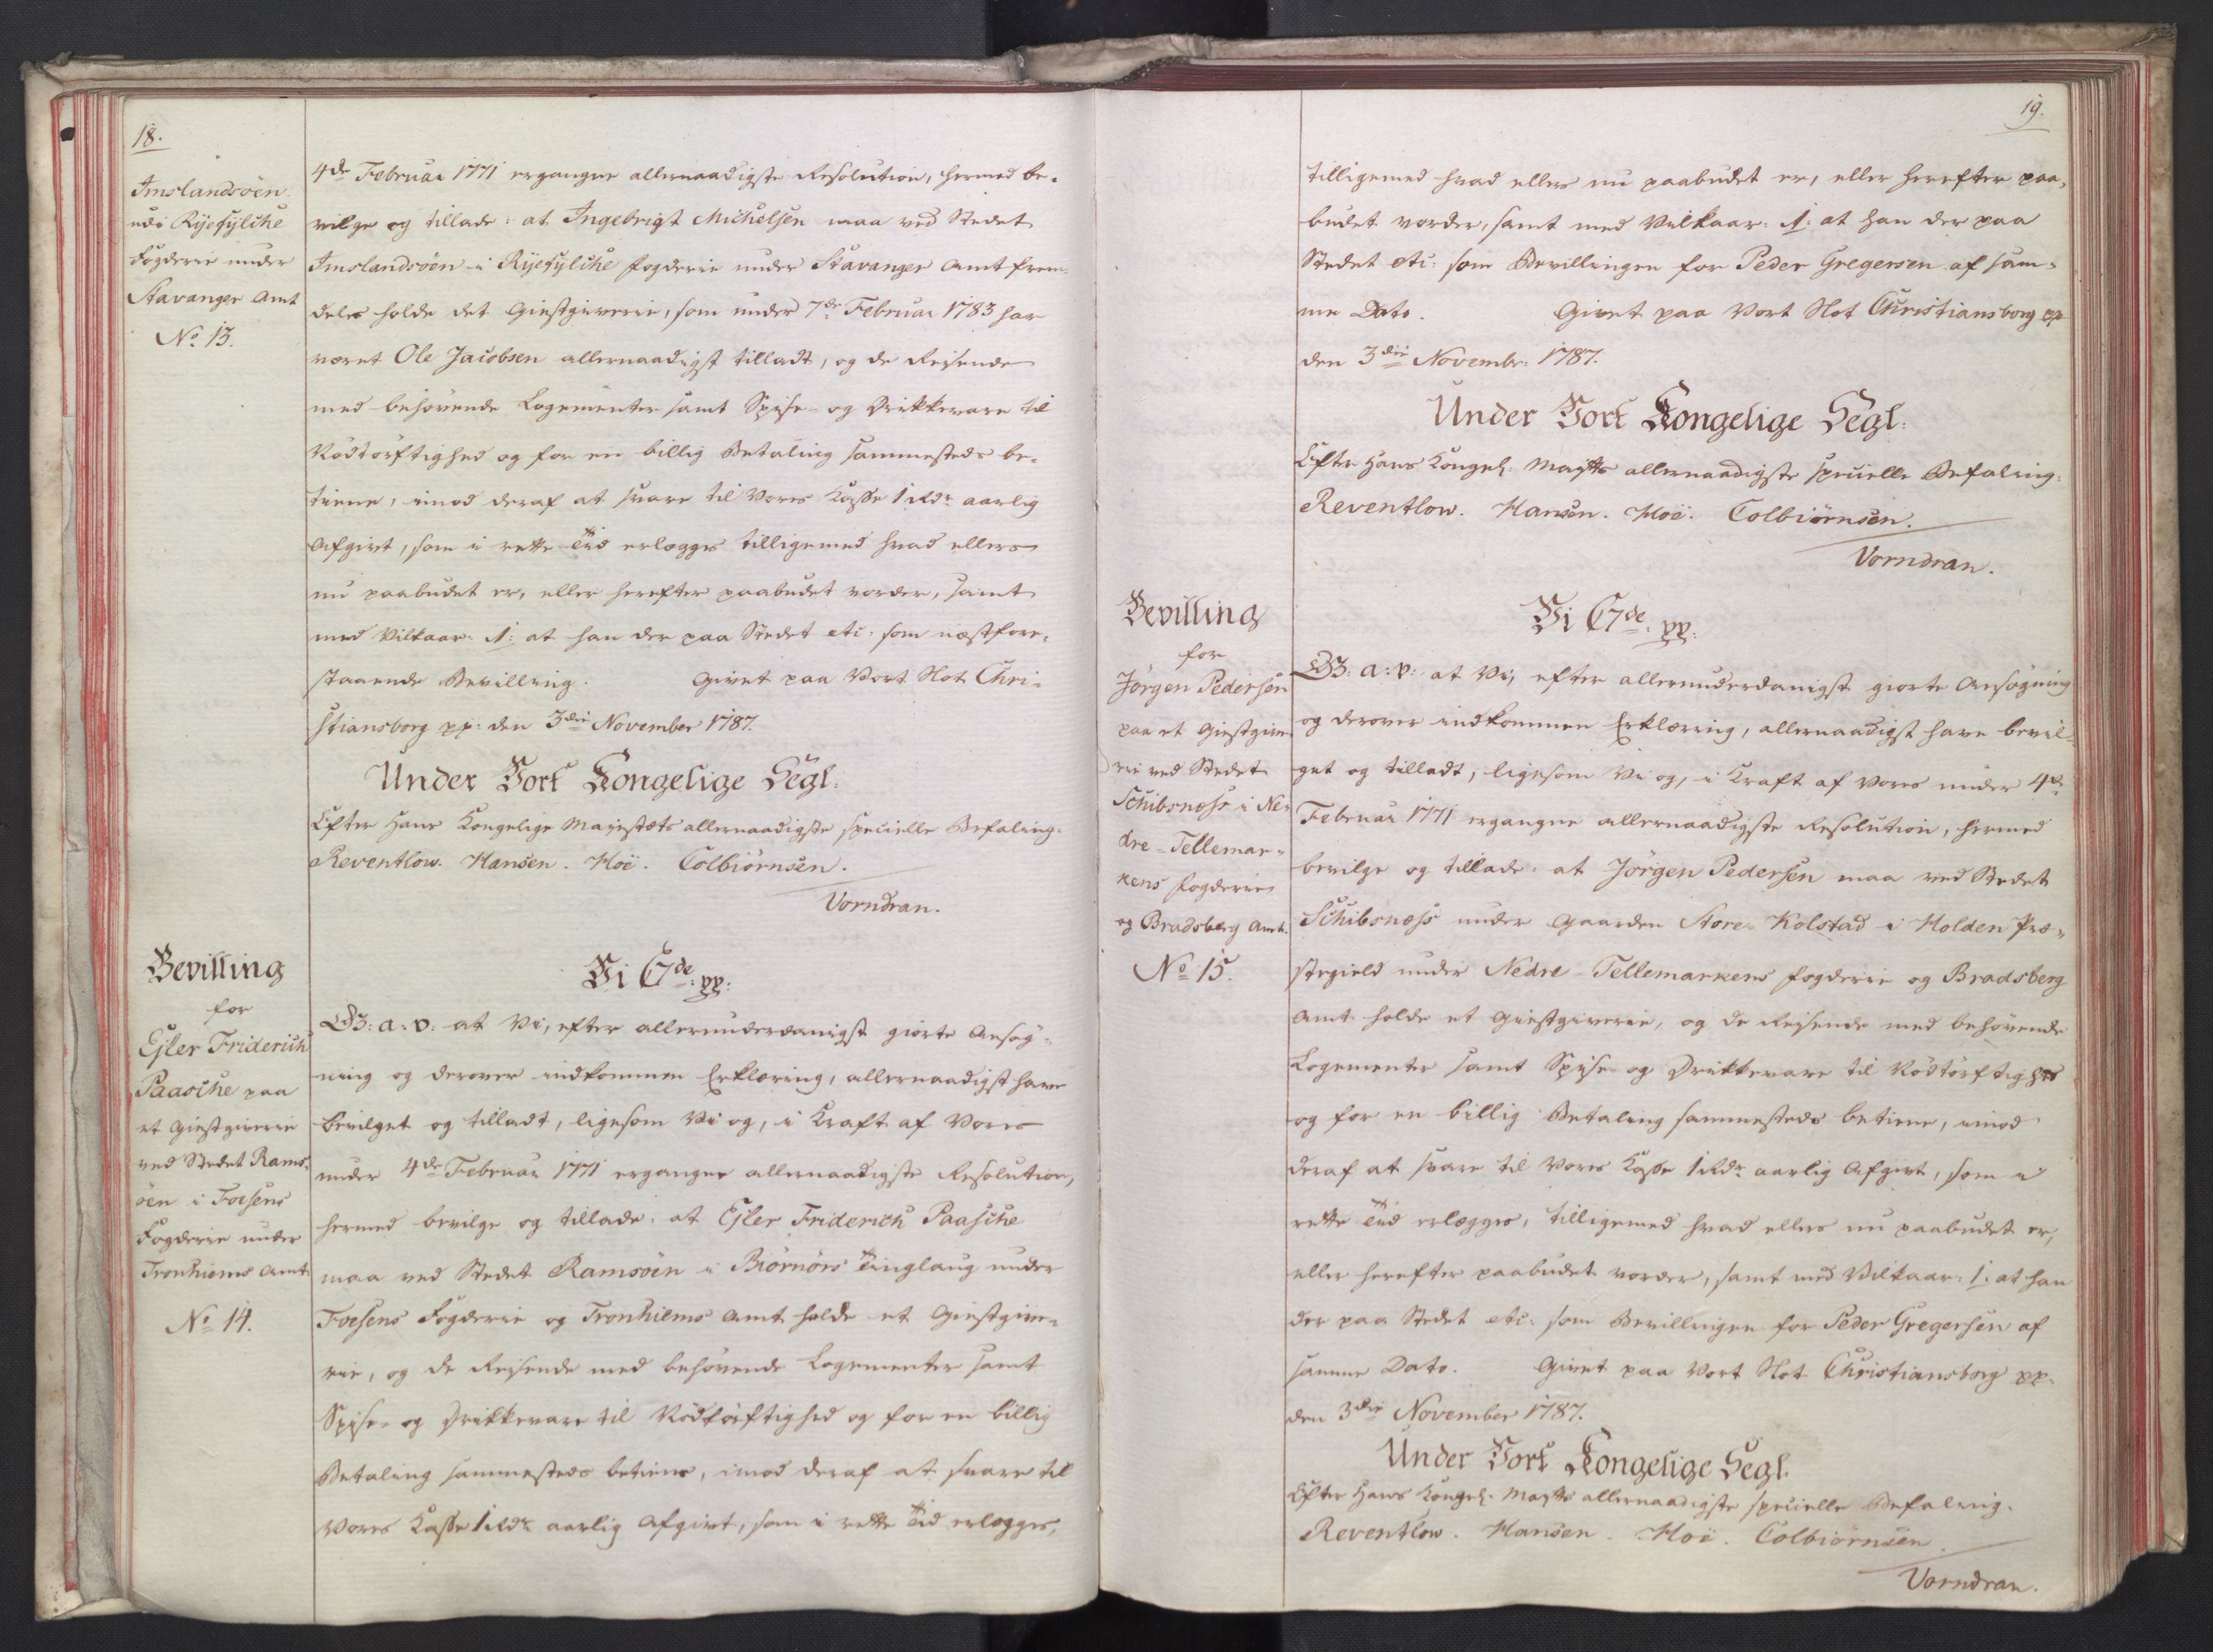 18.
Imslandsöen
udi Rÿefÿlche
Fogderie under
Stavanger Amt
No. 13.
4de Februar 1771 ergangne allernaadigste Resolution, hermed be-
vilge og tillade: at Ingebrigt Michelsen maa ved Stedet
Imslandsöen i Rÿefÿlche Fogderie under Stavanger Amt frem-
deles holde det Giestgiverie, som under 7de Februar 1783 har
været Ole Jacobsen allernaadigst tilladt, og de Reisende
med behövende Logementer samt Spise- og Drikkevare til
Nödtörftighed og for en billig Betaling sammesteds be-
tiene, imod deraf at svare til Vores Kasse 1 Rdr aarlig
Afgivt, som i rette Tiid erlægges tilligemed hvad ellers
nu paabudet er, eller herefter paabudet vorder, samt
med Vilkaar: 1: at han der paa Stedet etc: som næstfore-
staaende Bevilling. Givet paa Vort Slot Chri-
stiansborg pp: den 3die November 1787.
Under Vort Kongelige Segl:
Efter Hans Kongelige Majestæts allernaadigste specielle Befaling.
Reventlow. Hansen. Moë. Colbiörnsen.
Vorndran.
Bevilling
for
Ejler Friderich
Paasche paa
et Giestgiverie
ved Stedet Rams-
öen i Foesens
Fogderie under
Tronhiems Amt
No 14.
Vi C7de: pp:
G3: a: v: at Vi, efter allerunderdanigst giorte Ansög-
ning og derover indkommen Erklæring, allernaadigst have
bevilget og tilladt, ligesom Vi og, i Kraft af Vores
under 4de Februar 1771 ergangne allernaadigste Resolution,
hermed bevilge og tillade: at Ejler Friderich Paasche
maa ved Stedet Ramsöen i Biörnörs Tinglaug under
Foesens Fogderie og Tronhiems Amt holde et Giestgive-
rie, og de Reisende med behövende Logementer samt
Spise- og Drikkevare til Nödtörftighed og for en billig
Betaling sammesteds betiene, imod deraf at svare til
Vores Kasse 1 Rdr aarlig Afgivt, som i rette Tid erlægges,
19.
tilligemed hvad ellers nu paabudet er, eller herefter paa-
budet vorder, samt med Vilkaar: 1: at han der paa
Stedet etc: som Bevillingen for Peder Gregersen af sam-
me Dato. Givet paa Vort Slot Christiansborg pp
den 3die Novembr: 1787.
Under Vort Kongelige Segl:
Efter Hans Kongel: Maysts allernaadigste specielle Befaling:
Reventlow. Hansen. Moë. Colbiörnsen.
Vorndran.
Bevilling
for
Jörgen Pedersen
paa et Giestgive-
rie ved Stedet
Schibsnæss i Ne-
dre-Tellemar-
kens Fogderie
og Bradsberg Amt.
No 15.
Vi C7de: pp:
G3: a: v: at Vi, efter allerunderdanigst giorte Ansögning
og derover indkommen Erklæring, allernaadigst have bevil-
get og tilladt, ligesom Vi og, i Kraft af Vores under 4de
Februar 1771 ergangne allernaadigste Resolution, hermed
bevilge og tillade: at Jörgen Pedersen maa ved Stedet
Schibsnæss under Gaarden Store-Kolstad i Holden Præ-
stegield under Nedre-Tellemarkens Fogderie og Bradsberg
Amt holde et Giestgiverie, og de Reisende med behövende
Logementer samt Spise- og Drikkevare til Nödtörftighed
og for en billig Betaling sammesteds betiene, imod
deraf at svare til Vores Kasse 1 Rdr aarlig Afgivt, som i
rette Tiid erlægges, tilligemed hvad ellers nu paabudet er,
eller herefter paabudet vorder, samt med Vilkaar: 1: at han
der paa Stedet etc: som Bevillingen for Peder Gregersen af
samme Dato. Givet paa Vort Slot Christiansborg pp.
den 3die November 1787.
Under Vort Kongelige Segl.
Efter Hans Kongel: Maysts allernaadigste specielle Befaling.
Reventlow. Hansen. Moë. Colbiörnsen.
Vorndran.